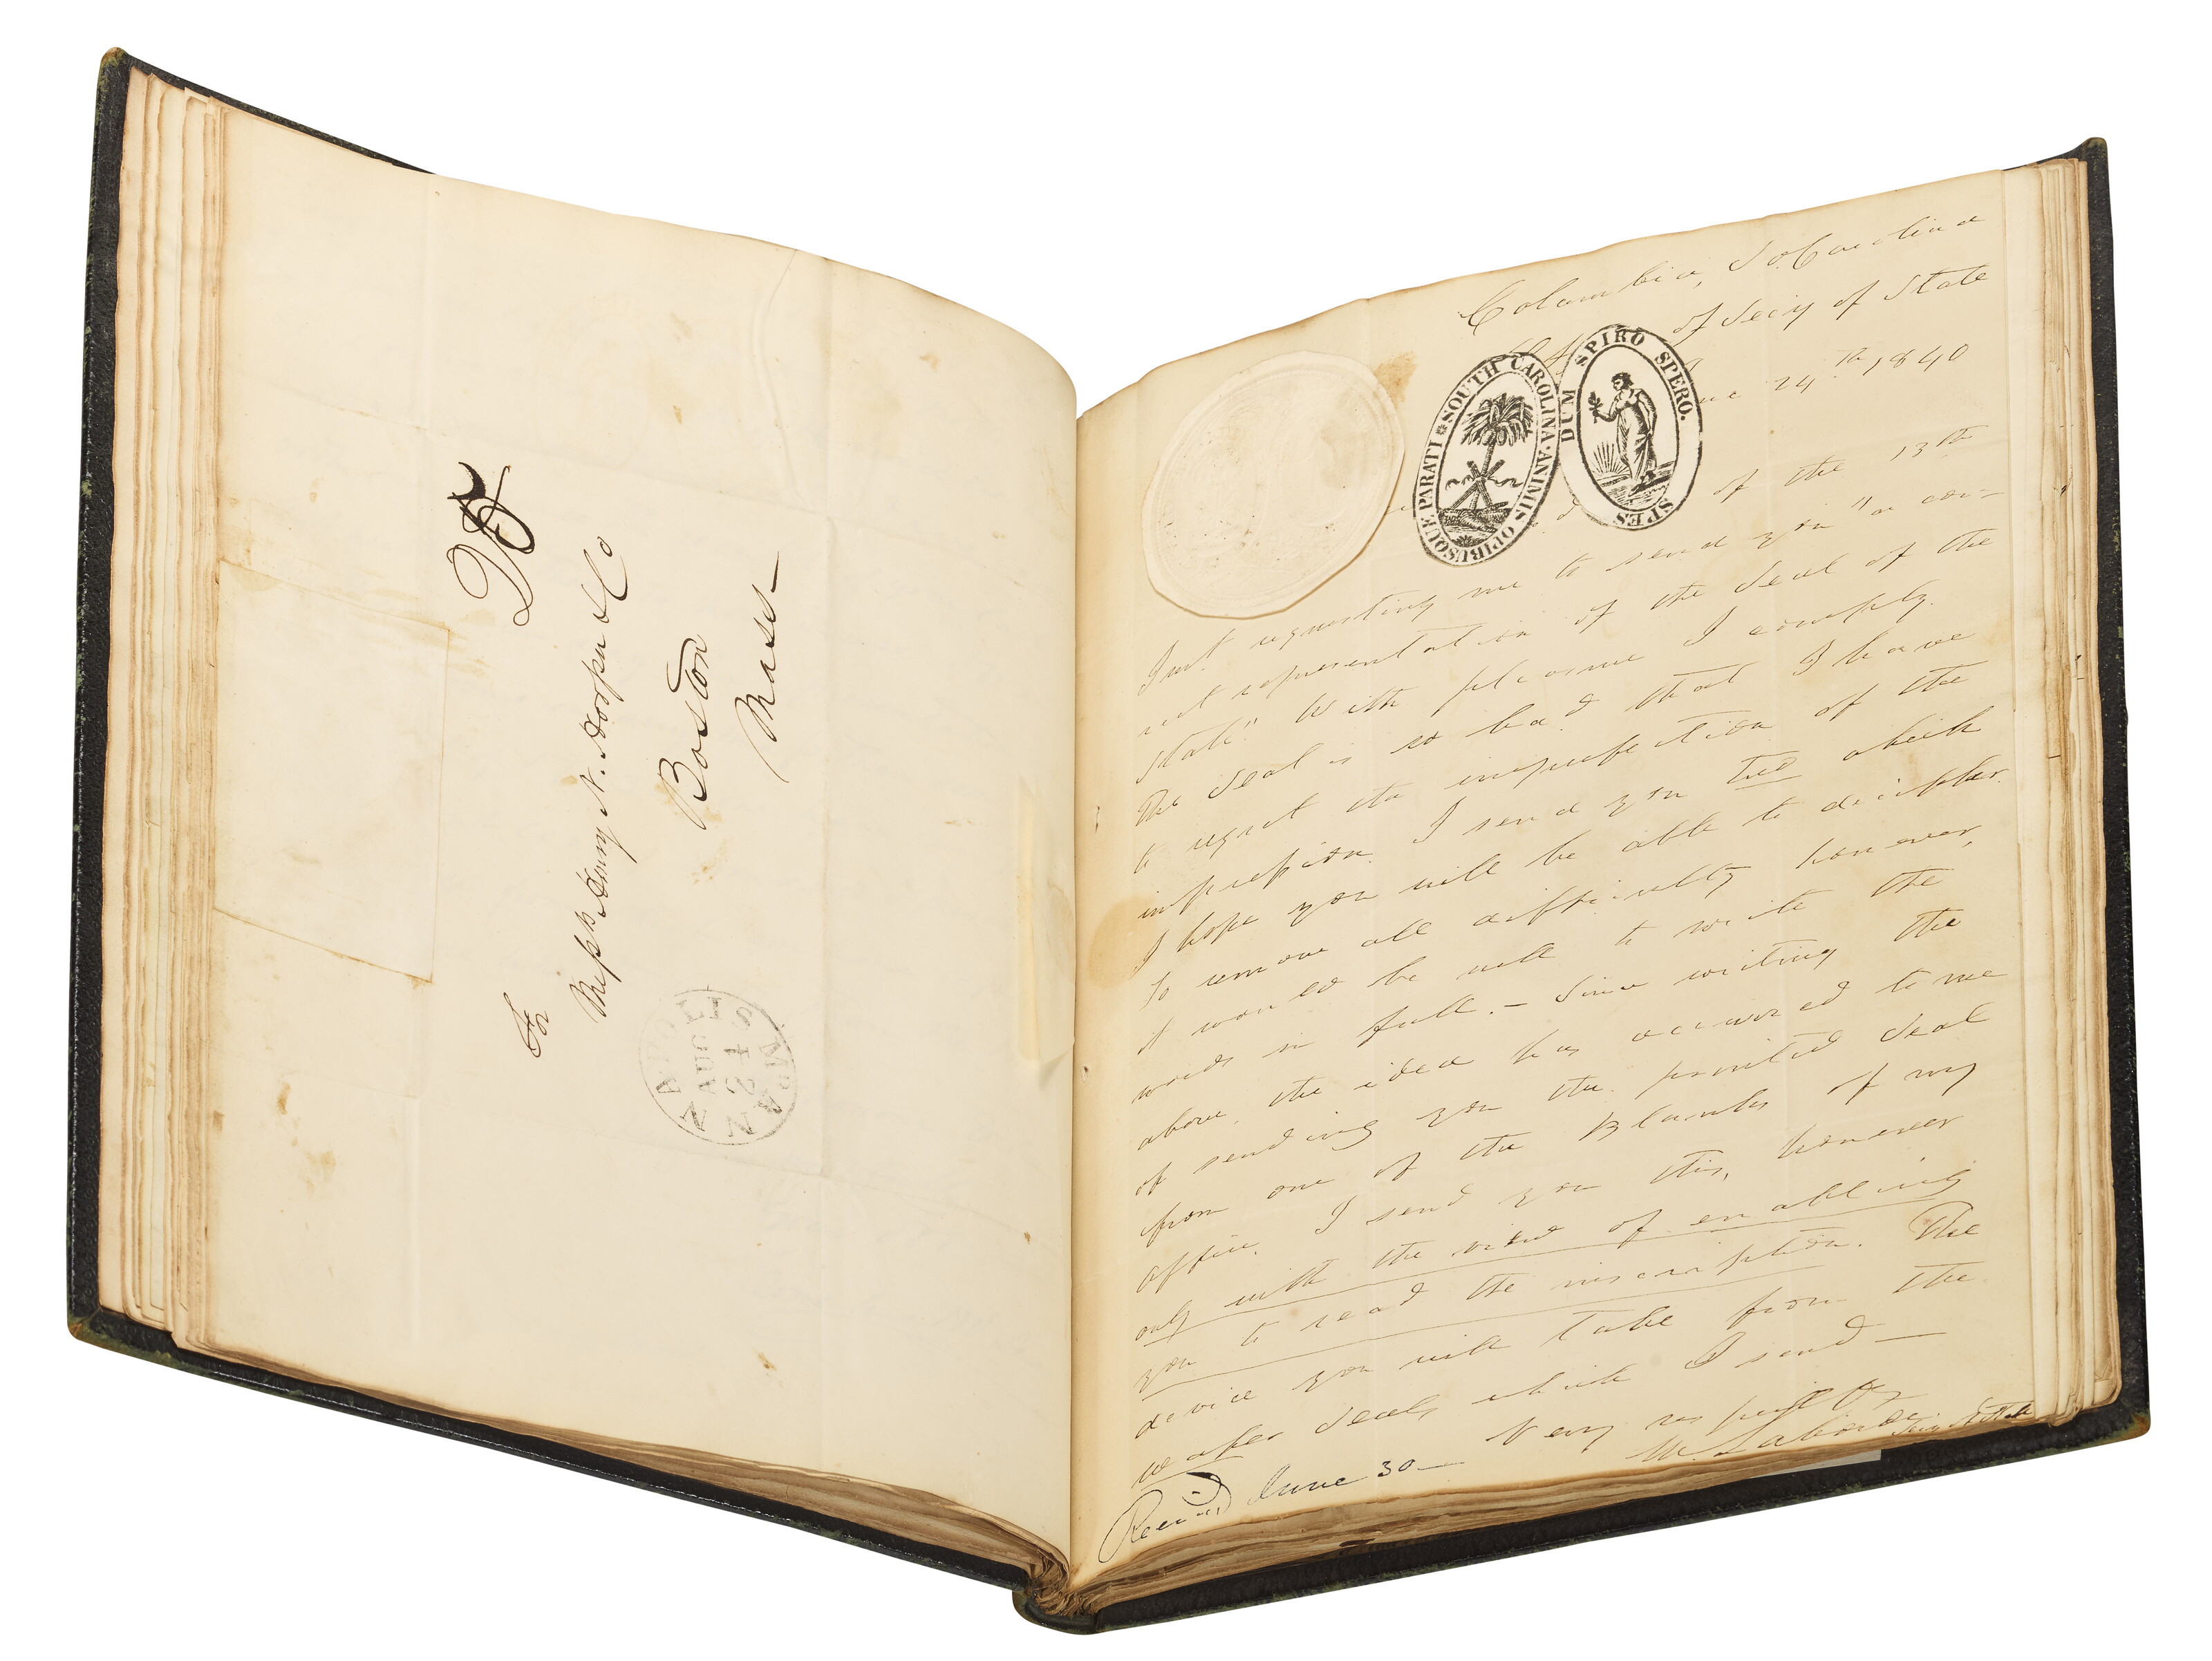 For
Messrs Henry N. Hooper & Co
Boston
Mass
ANNAPOLIS Md.
AUG
24
Columbia, So. Carolina
of Secy of State
24th, 1840
SOUTH CAROLINA · ANIMIS OPIBUSQUE PARATI
DUM SPIRO SPERO.
SPES
of the 13th
Inst. requesting me to send you "a cor-
rect representation of the Seal of the
State." With pleasure I comply.
The Seal is so bad that I have
to regret the imperfection of the
impression. I send you two which
I hope you will be able to decipher.
To remove all difficulty however,
it would be well to write the
words in full. — Since writing the
above, the idea has occurred to me
of sending you the printed Seal
from one of the Blanks of my
office. I send you this, however
only with the view of enabling
you to read the inscription. The
device you will take from the
wafer seals which I send —
Very respectfly
M. Laborde
Secy of State
Received June 30 —